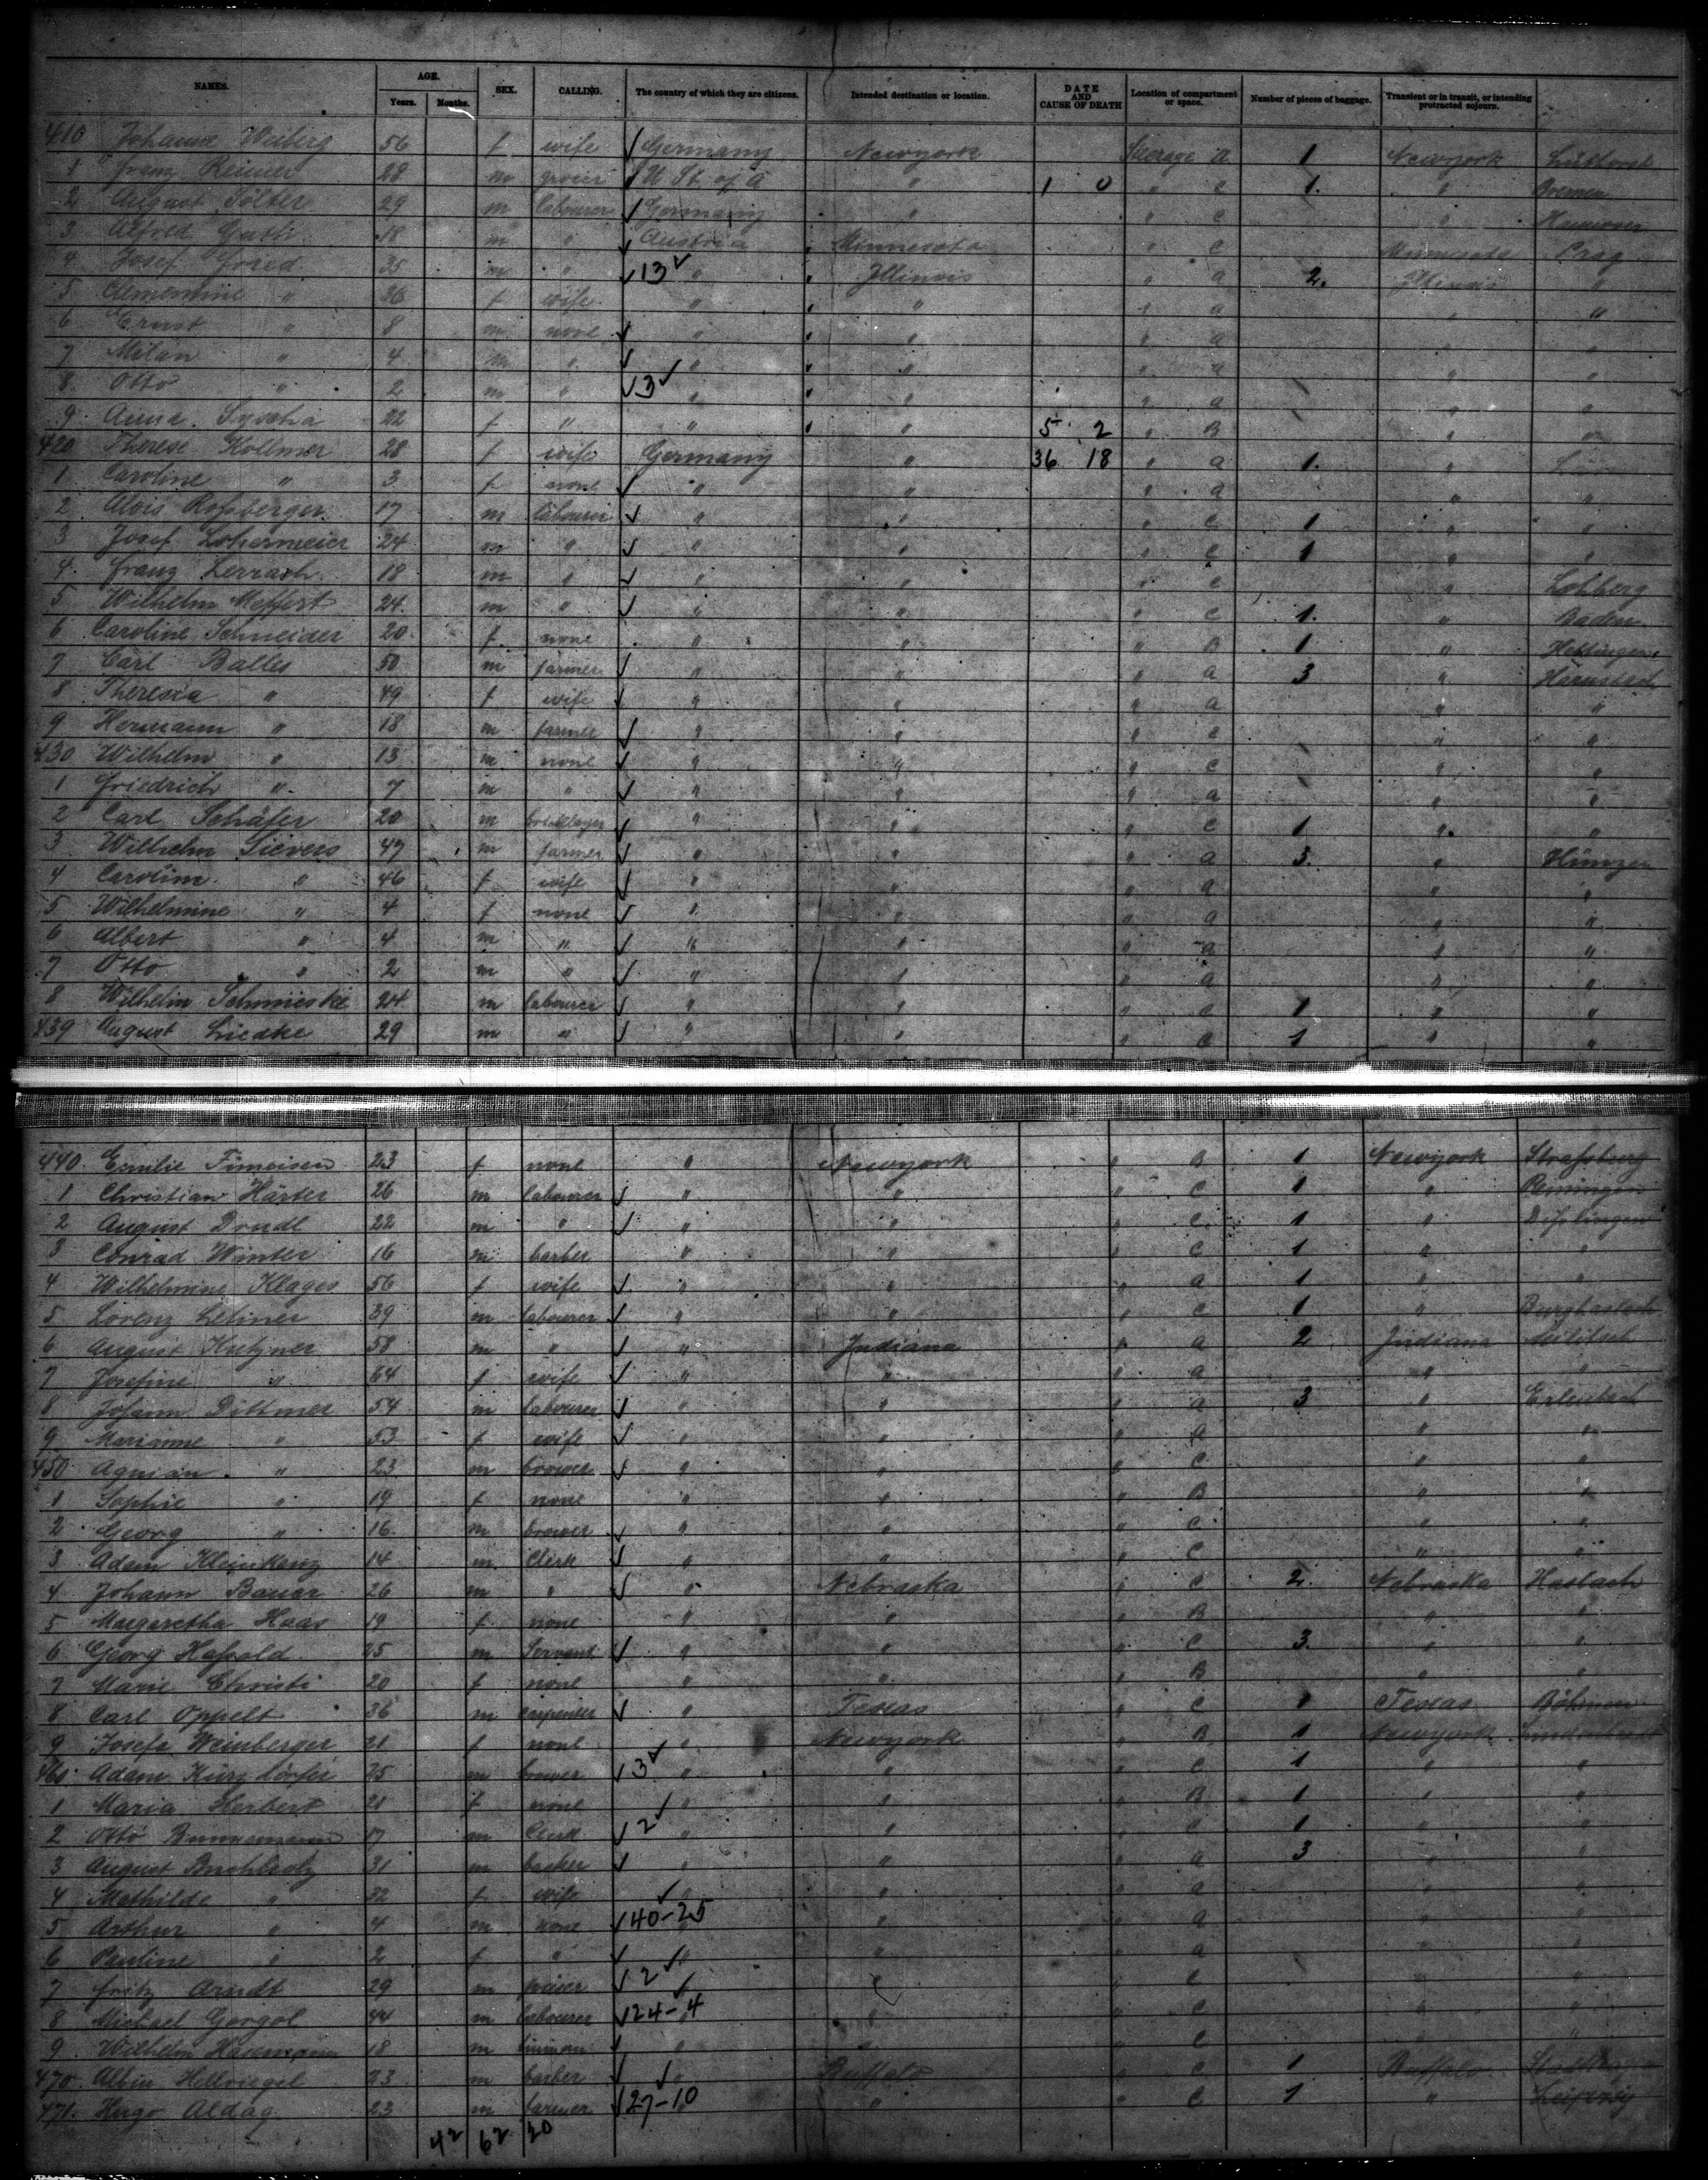 NAMES. AGE. Years. Months. SEX. CALLING. The country of which they are citizens. Intended destination or location. DATE AND CAUSE OF DEATH Location of compartment or space. Number of pieces of baggage. Transient or in transit, or intending protracted sojourn.
410 Johanne Weiberg 56 f wife ✓ Germany Newyork Steerage a 1 Newyork
1 Franz Reimer 28 m grocer ✓ U. St. of A " 1 0 " c 1. " Bremen
2 August Sölter 29 m labourer ✓ Germany " " c " Hannover
3 Alfred 18 m " ✓ Austria Minnesota " c Minnesota Prag
4 Josef Fried 35 m " ✓ 13 ✓ " Illinois " a 2. Illinois "
5 Clementine " 36 f wife " " " a " "
6 Ernst " 8 m none ✓ " " " a " "
7 Milan " 4 m " ✓ " " " a " "
8. Otto " 2 m " ✓ 3 ✓ " " " a " "
9 Anna 22 f " " " 5 2 " B " "
420 Therese Kollmer 28 f wife Germany " 36 18 " a 1. "
1 Caroline " 3 f none ✓ " " " a " "
2 Alois Roßberger 17 m labourer ✓ " " " c 1 " "
3 Josef Lohermeier 24 m " ✓ " " " c 1 " "
4. Franz Zerrach 18 m " ✓ " " " c " Lohberg
5 Wilhelm Meffert 24. m " ✓ " " " c 1. " Baden
6 Caroline Schneider 20 f none " " " B 1 " Hettingen
7 Carl Balles 50 m farmer ✓ " " " a 3 "
8 Theresia " 49 f wife ✓ " " " a " "
9 Hermann " 18 m farmer ✓ " " " c " "
430 Wilhelm " 13 m none ✓ " " " c " "
1 Friedrich " 7 m " ✓ " " " a " "
2 Carl Schäfer 20 m ✓ " " " c 1 " "
3 Wilhelm Sievers 47 m farmer ✓ " " " a 5. "
4 Caroline " 46 f wife ✓ " " " a " "
5 Wilhelmine " 4 f none ✓ " " " a " "
6 Albert " 4 m " ✓ " " " a " "
7 Otto " 2 m " ✓ " " " a " "
8 Wilhelm Schmieske 24 m labourer ✓ " " " c 1 " "
439 August Liedke 29 m " ✓ " " " c 1 " "
440. Emilie 23 f none " Newyork " B 1 Newyork Straßburg
1 Christian Härter 26 m labourer ✓ " " " c 1 "
2 August Drudl 22 m " ✓ " " " c. 1 "
3 Conrad Winter 16 m barber " " " c 1 " "
4 Wilhelmine Klages 56 f wife ✓ " " " a 1 " "
5 Lorenz Lehner 39 m labourer ✓ " " " c 1 " Burghaslach
6 August Kutzner 58 m " ✓ " Indiana " a 2 Indiana
7 Josefine " 64 f wife ✓ " " " a " "
8 Johann Dittmer 54 m labourer ✓ " " " a 3 " Erlenbach
9 Marianne " 53 f wife ✓ " " " a " "
450 " 23 m brewer ✓ " " " c " "
1 Sophie " 19 f none " " " B " "
2 Georg " 16. m brewer ✓ " " " c " "
3 Adam Kleinkenz 14 m clerk ✓ " " " c " "
4 Johann Bauer 26 m " ✓ " Nebraska " c 2. Nebraska Haslach
5 Margaretha Haas 19 f none " " " B " "
6 Georg Haßold 25 m Servant ✓ " " " c 3 " "
7 Marie Christi 20 f none " " " B " "
8 Carl Oppelt 36 m carpenter ✓ " Texas " c 1 Texas Böhmen
9 Josefa Weinberger 21 f none " Newyork " B 1 Newyork
460 Adam Kürzdörfer 25 m brewer ✓ 3 ✓ " " " c 1 " "
1 Maria Herbert 21 f none " " " B 1 " "
2 Otto Bunnemann 17 m Clerk ✓ 2 ✓ " " " c 1 " "
3 August Buchholz 31 m ✓ " " " a 3 " "
4 Mathilde " 32 f wife " " " a " "
5 Arthur " 4 m none ✓ 40-25 ✓ " " a " "
6 Pauline " 2 f " ✓ " " " a " "
7 Fritz Arndt 29 m ✓ 2 ✓ " " c " "
8 Michael Gorgol 44 m labourer ✓ 124-4 ✓ " " c " "
9. Wilhelm 18 m ✓ " " " c " "
470 Albin Hellriegel 23 m barber ✓ " Buffalo " c 1 Buffalo
471. Hugo Aldag 23 m farmer ✓ 27-10 ✓ " " c 1 " Leipzig
42 62 20